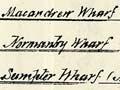 Macandrew Wharf
Normanby Wharf
Sumpter Wharf